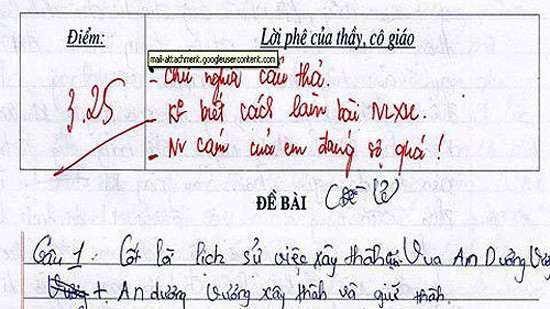 Điểm:
Lời phê của thầy, cô giáo
mail-attachment.googleusercontent.com
3,25
- Chữ nghĩa cẩu thả.
- Ko biết cách làm bài NLXH.
- NV cảm của em đáng sợ quá!
ĐỀ BÀI
Câu 1. Cốt lõi lịch sử việc xây thành. Vua An Dương
+ An dương vương xây thành và giữ thành.